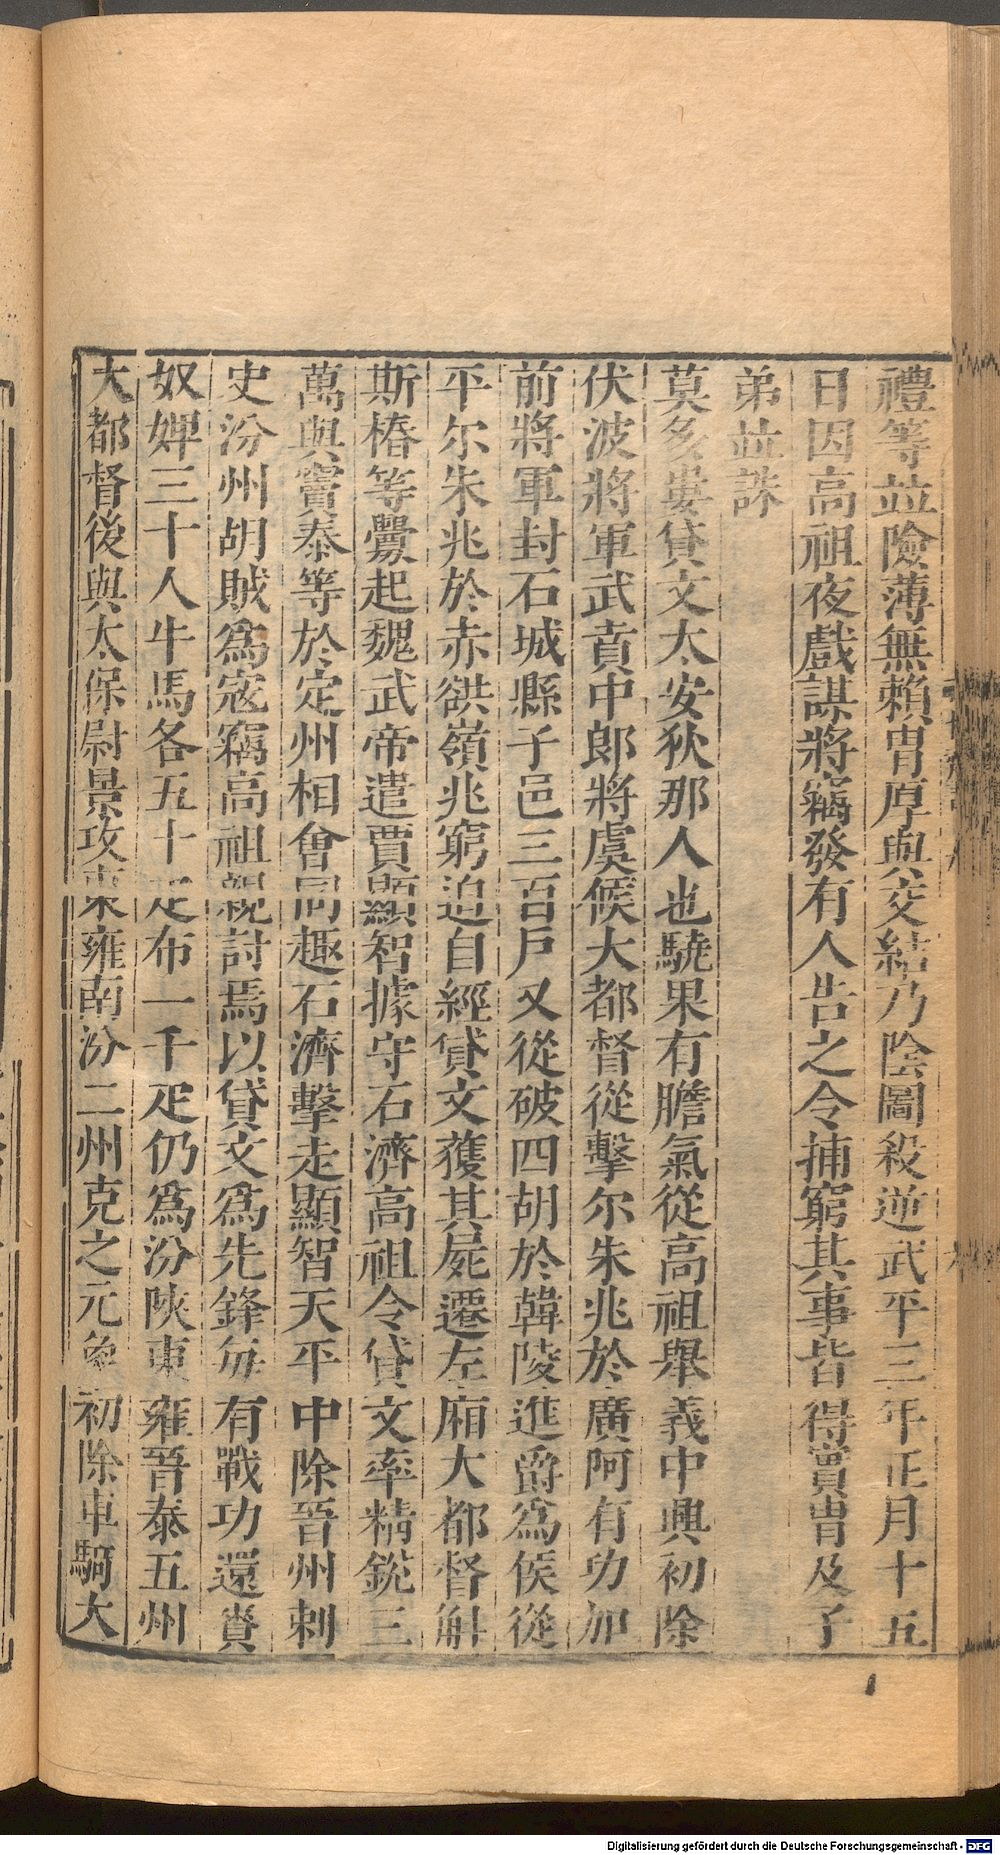 禮等並險薄無賴胄厚與交結乃陰圖殺逆武平三年正月十五
日因高祖夜戲謀將竊發有人告之令捕窮其事皆得實胄及子
弟並誅
莫多婁貸文太安狄那人也驍果有膽氣從高祖舉義中興初除
伏波將軍武賁中郎將虞候大都督從擊尔朱兆於廣阿有功加
前將軍封石城縣子邑三百戶又從破四胡於韓陵進爵為侯從
平尔朱兆於赤谼嶺兆窮迫自經貸文獲其屍遷左廂大都督斛
斯椿等釁起魏武帝遣賈顯智據守石濟高祖令貸文率精銳三
萬與竇泰等於定州相會同趣石濟擊走顯智天平中除晉州刺
史汾州胡賊為寇竊高祖親討焉以貸文為先鋒每有戰功還賚
奴婢三十人牛馬各五十疋布一千疋仍為汾陝東雍晉泰五州
大都督後與太保尉景攻東雍南汾二州克之元象初除車騎大
Digitalisierung gefördert durch die Deutsche Forschungsgemeinschaft - DFG